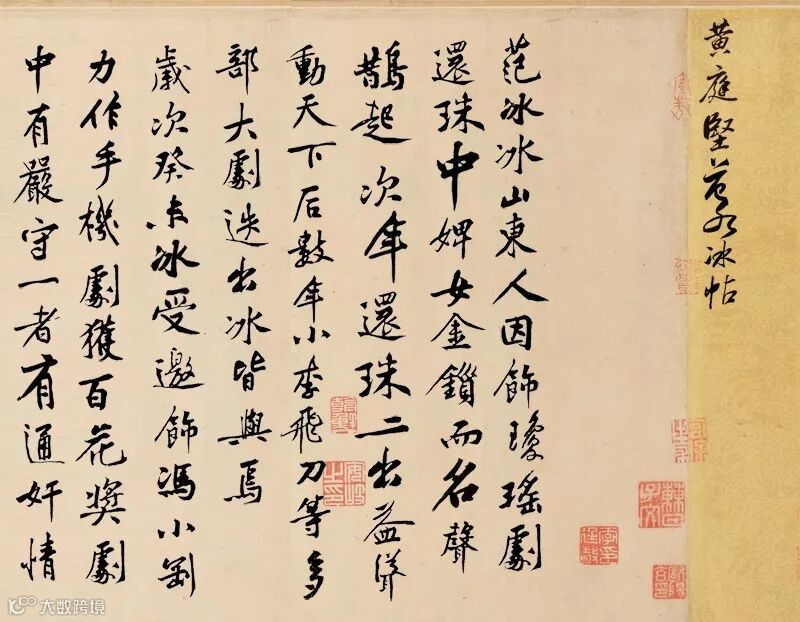 黄庭堅范冰冰帖
范冰冰山東人因飾瓊瑤劇
還珠中婢女金鎖而名聲
鵲起次年還珠二出益聲
動天下后數年小李飛刀等多
部大劇迭出冰皆與焉
歲次癸未冰受邀飾馮小剛
力作手機劇獲百花獎劇
中有嚴守一者有通奸情
大数跨境